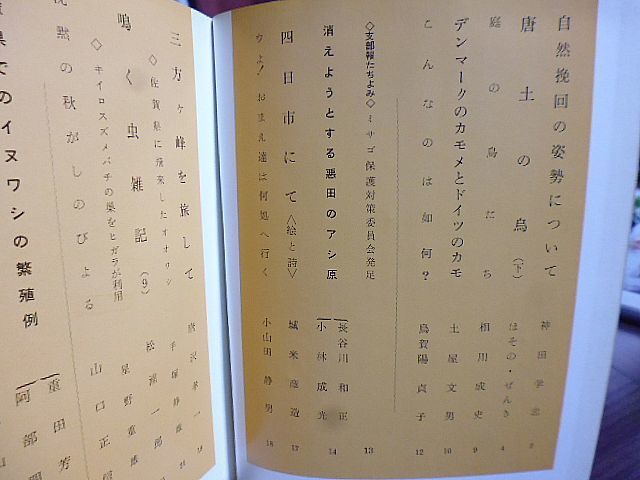 自然挽回の姿勢について 神田学忠 2
唐土の鳥(下) ほその・ぜんき 4
庭の鳥たち 相川成史 9
デンマークのカモメとドイツのカモ 土屋文男 10
こんなのは如何? 烏賀陽貞子 12
◇支部報たちよみ◇ミサゴ保護対策委員会発足 13
消えようとする悪田のアシ原 長谷川和正 小林成光 14
四日市にて〈絵と詩〉 城米彦造 17
ウよ!おまえ達は何処へ行く 小山田静男 18
三方ヶ峰を旅して
◇佐賀県に飛来したオオワシ 手塚静雄
鳴く虫雑記(9) 松浦一郎
◇キイロスズメバチの巣をヒガラが利用 星野重
沈黙の秋がしのびよる 山口正
県でのイヌワシの繁殖例 重田芳 阿部